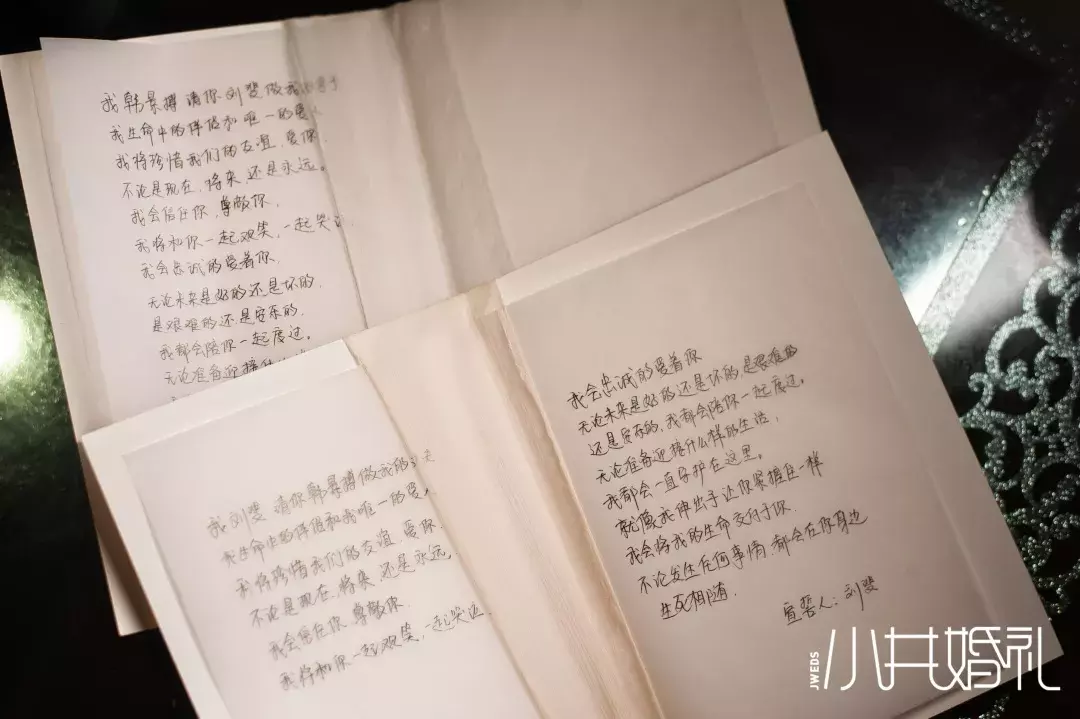 我韩景搏 请你刘斐做我的妻子
我生命中的伴侣和唯一的爱人
我将珍惜我们的友谊、爱你、
不论是现在、将来、还是永远。
我会信任你、尊敬你、
我将和你一起欢笑、一起哭泣
我会忠诚的爱着你、
无论未来是好的还是坏的、
是艰难的还是安乐的、
我都会陪你一起度过。
无论准备迎接什么
我刘斐 请你韩景搏做我的丈夫
我生命中的伴侣和我唯一的爱人
我将珍惜我们的友谊、爱你、
不论是现在、将来、还是永远。
我会信任你、尊敬你、
我将和你一起欢笑、一起哭泣、
我会忠诚的爱着你
无论未来是好的还是坏的、是艰难的
还是安乐的、我都会陪你一起度过。
无论准备迎接什么样的生活、
我都会一直守护在这里。
就像我伸出手让你紧握住一样
我会将我的生命交付于你、
不论发生任何事情、都会在你身边
生死相随、
宣誓人：刘斐
JWEDS 小井婚礼